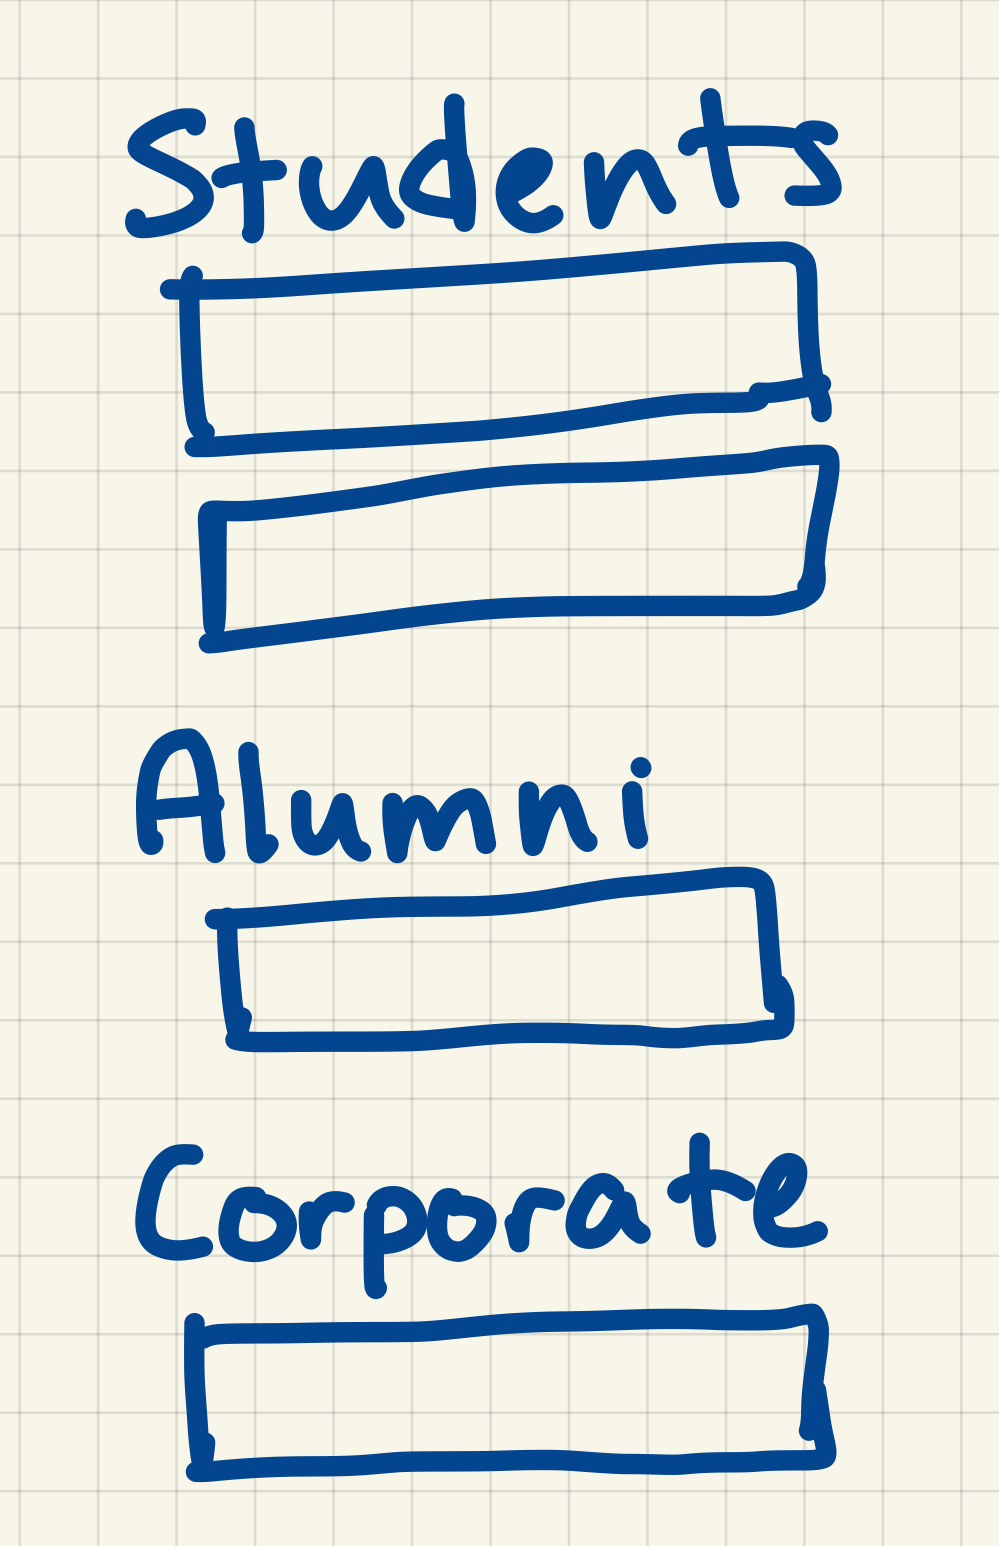 Students
Alumni
Corporate